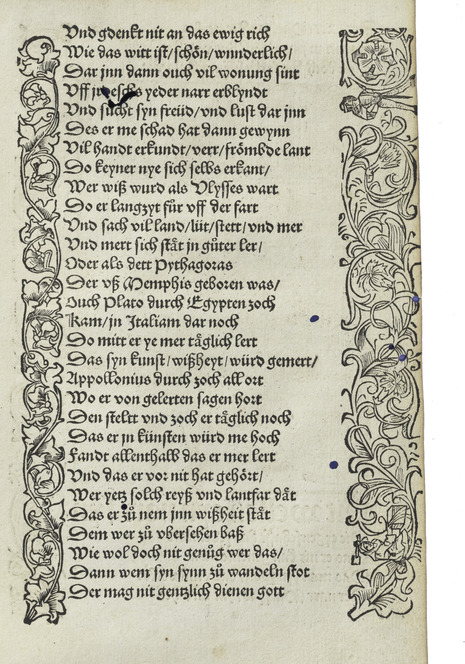 Vnd gdenckt nit an das ewig rich
Wie das witt ist/schön/wunderlich/
Dar jnn dann ouch vil wonung sint
Vff yeder narr erblyndt
Vnd sücht syn freüd/vnd lust dar jnn
Des er me schad hat dann gewynn
Vil handt erkundt/verr/frömbde lant
Do keyner nye sich selbs erkant/
Wer wiß wurd als Vlysses wart
Do er langzyt für vff der fart
Vnd sach vil land/lüt/stett/vnd mer
Vnd mert sich stät jn güter ler/
Oder als dett Pythagoras
Der vß Memphis geboren was/
Ouch Plato durch Egypten zoch
Kam/jn Italiam dar noch
Do mitt er ye mer täglich lert
Das syn kunst/wißheyt/würd gemert/
Appollonius durch zoch all ort
Wo er von gelerten sagen hort
Den stelt vnd zoch er täglich noch
Das er jn künsten würd me hoch
Fandt allenthalb das er mer lert
Vnd das er vor nit hat gehört/
Wer yetz solch reyß vnd lantfar dät
Das er zů nem jnn wißheit stät
Dem wer zů vbersehen baß
Wie wol doch nit genůg wer das/
Dann wem syn synn zů wandeln stot
Der mag nit gentzlich dienen gott